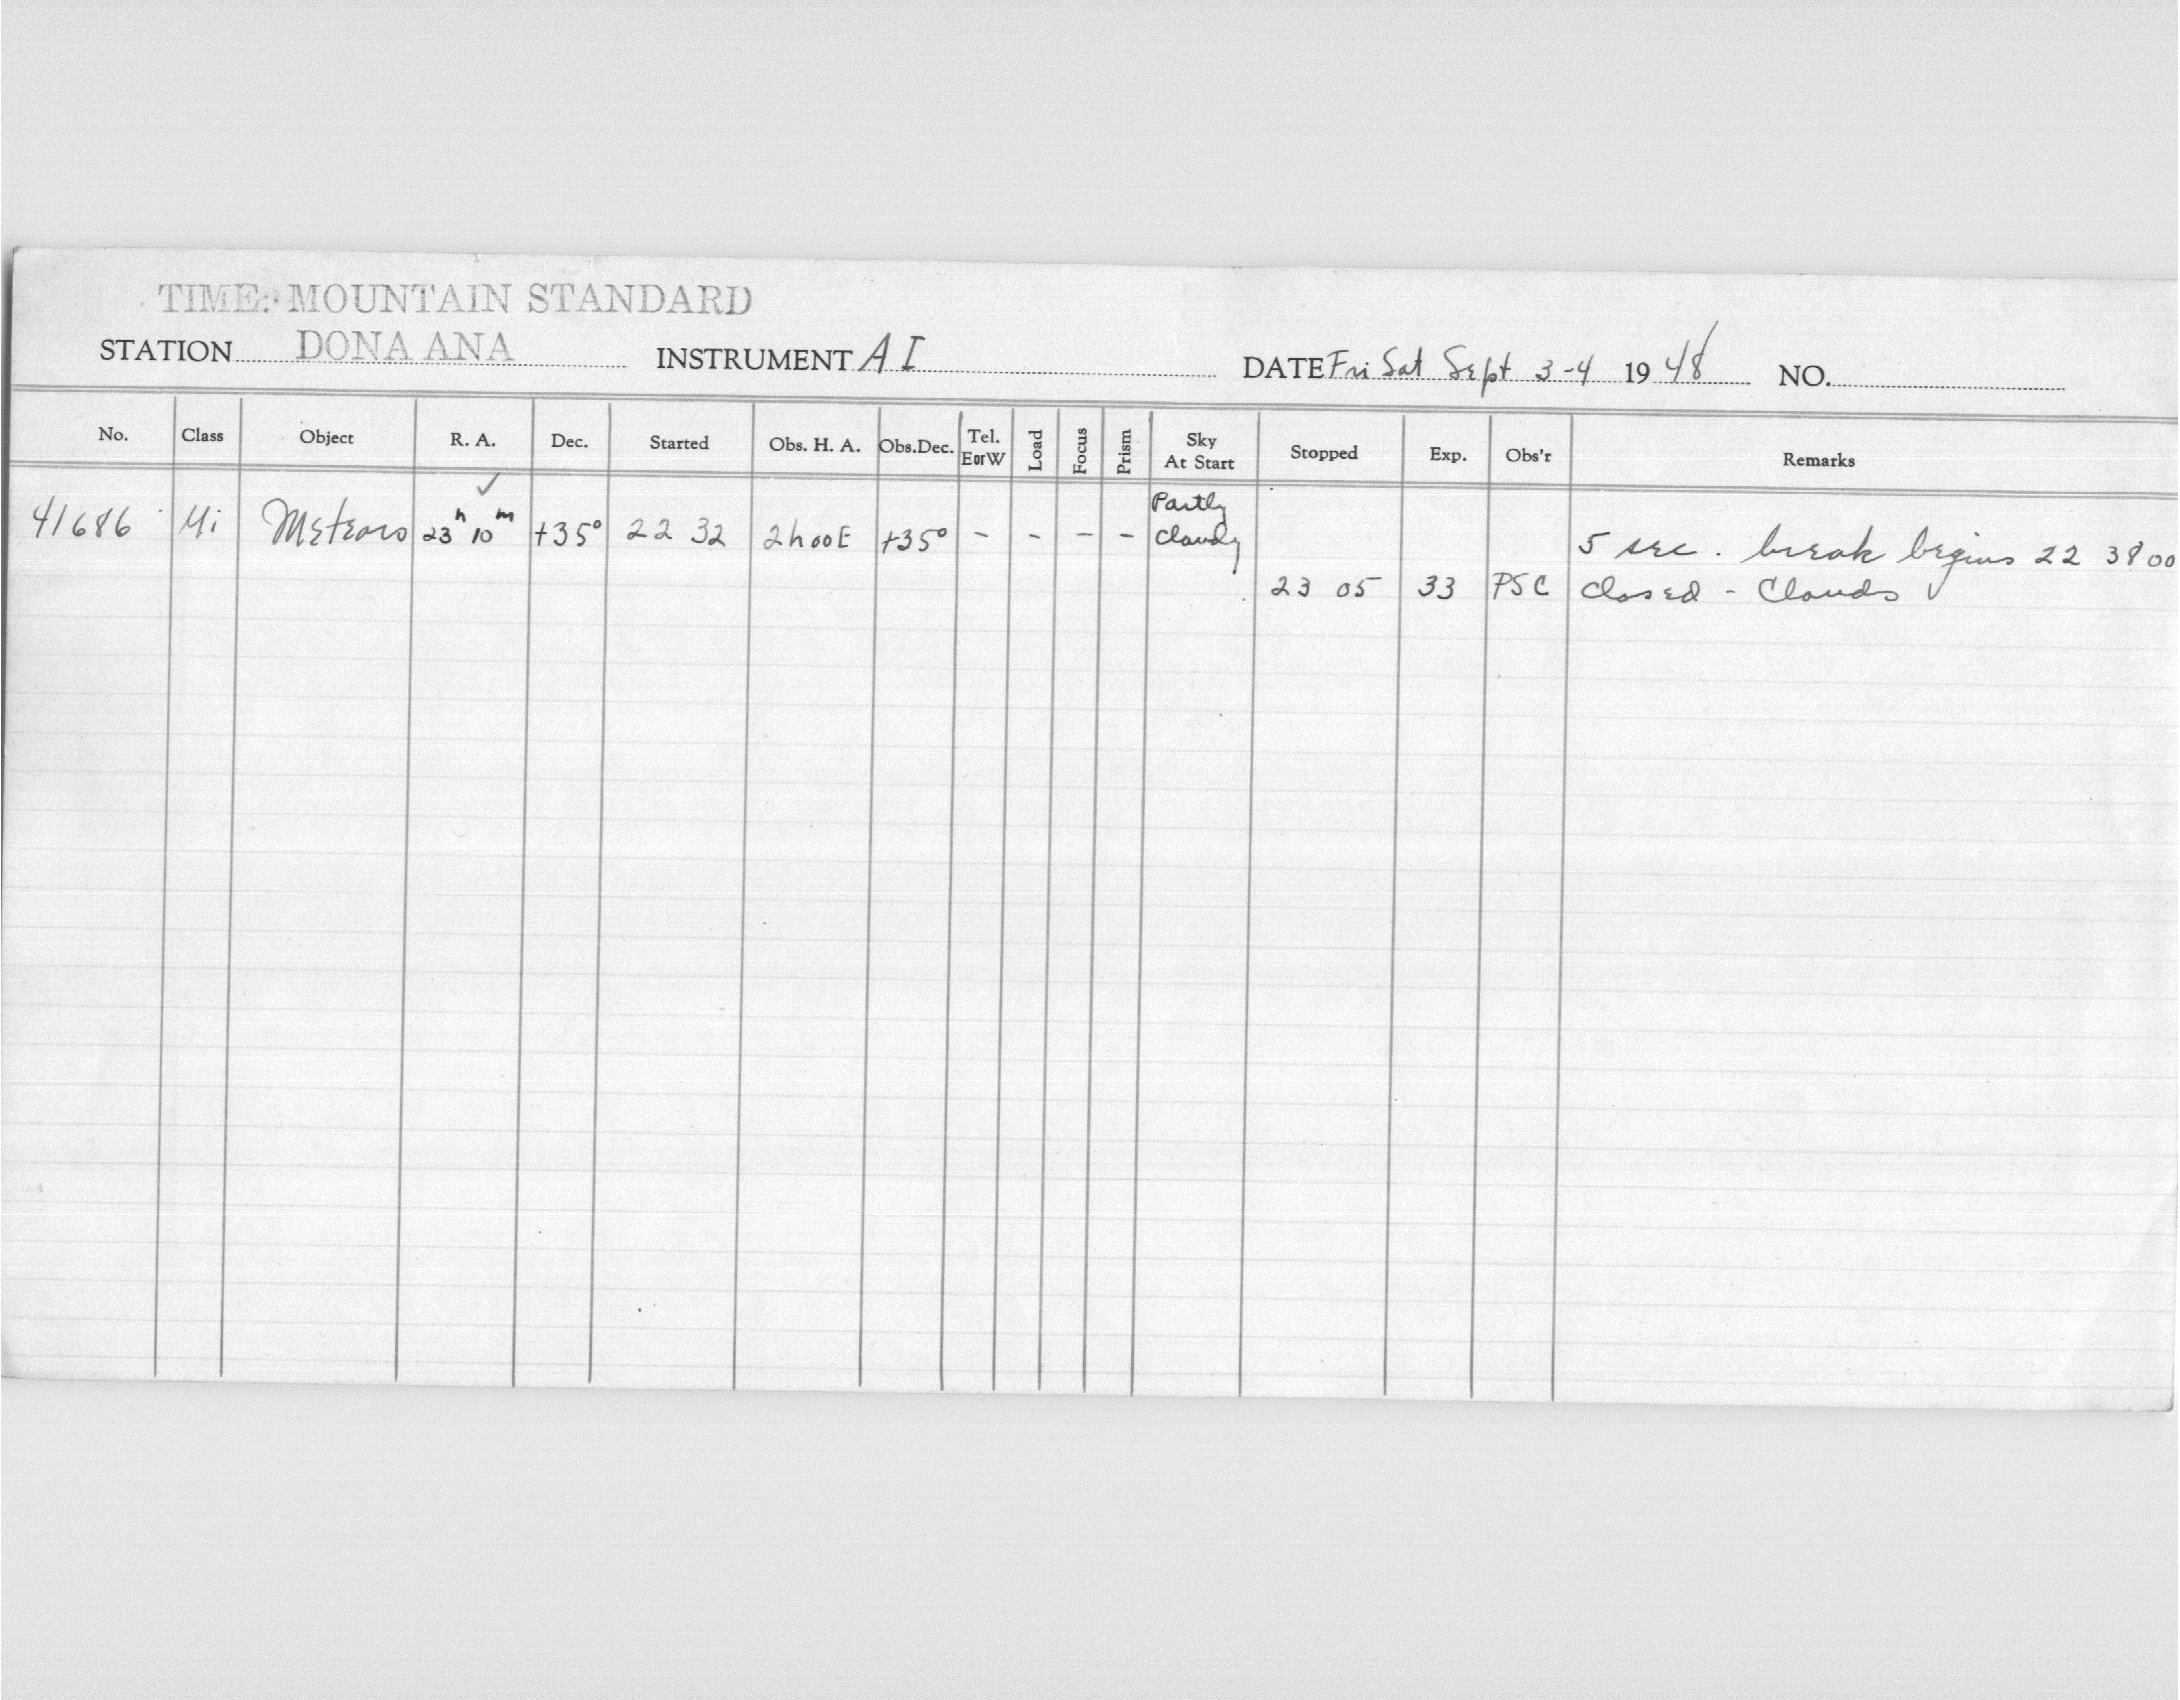 TIME: MOUNTAIN STANDARD
STATION DONA ANA INSTRUMENT AI DATE Fri Sat Sept 3-4 1948 NO.
No. Class Object R. A. Dec. Started Obs. H. A. Obs.Dec. Tel. EorW Load Focus Prism Sky At Start Stopped Exp. Obs'r Remarks
41686 Mi Meteors 23h 10m ✓ +35° 22 32 2h00E +35° - - - - Partly Cloudy 5 sec. break begins 22 38 00
23 05 33 PSC Closed - Clouds ✓